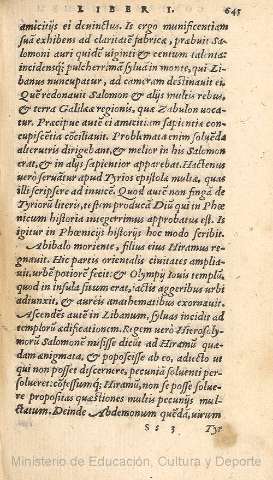 LIBER I. 645
amicitijs ei deuinctus. Is ergo munificentiam
suã exhibens ad claritatẽ fabricæ, præbuit Sa-
lomoni auri quidẽ uiginti & centum talenta:
incidensq́; pulcherrimã syluã in monte, qui Li-
banus nuncupatur, ad cameram destinauit ei.
Quẽ redonauit Salomon & alijs multis rebus,
& terra Galilææ regionis, quæ Zabulon uoca
tur. Præcipue autẽ ei amicitiam sapientiæ con-
cupiscẽtia cõciliauit. Problemata enim soluẽda
alterutris dirigebant, & melior in his Salomon
erat, & in alijs sapientior apparebat. Hactenus
uerò seruãtur apud Tyrios epistolæ multæ, quas
illi scripsere ad inuicẽ. Quod autẽ non fingã de
Tyriorũ literis, testem producã Diũ qui in Phœ
nicum historia integerrimus approbatus est. Is
igitur in Phœnicijs historijs hoc modo scribit.
Abibalo moriente, filius eius Hiramus re-
gnauit. Hic partes orientales ciuitatis amplia-
uit, urbẽ potiorẽ fecit: & Olympij Iouis templũ,
quod in insula situm erat, iactis aggeribus urbi
adiunxit, & aureis anathematibus exornauit.
Ascendẽs autẽ in Libanum, syluas incidit ad
templorũ ædificationem. Regem uerò Hierosoly-
morũ Salomonẽ misisse dicũt ad Hiramũ quæ-
dam ænigmata, & poposcisse ab eo, adiecto ut
qui non posset discernere, pecuniã soluenti per-
solueret: cõfessumq́; Hiramũ, non se posse solue-
re propositas quæstiones multis pecunijs mul-
ctatum. Deinde Abdemonum quẽdã, uirum
Ss 3 Tyr
Ministerio de Educación, Cultura y Deporte